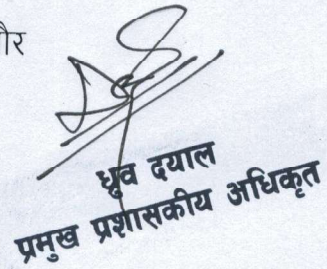 ौर
ध्रुव दयाल
प्रमुख प्रशासकीय अधिकृत